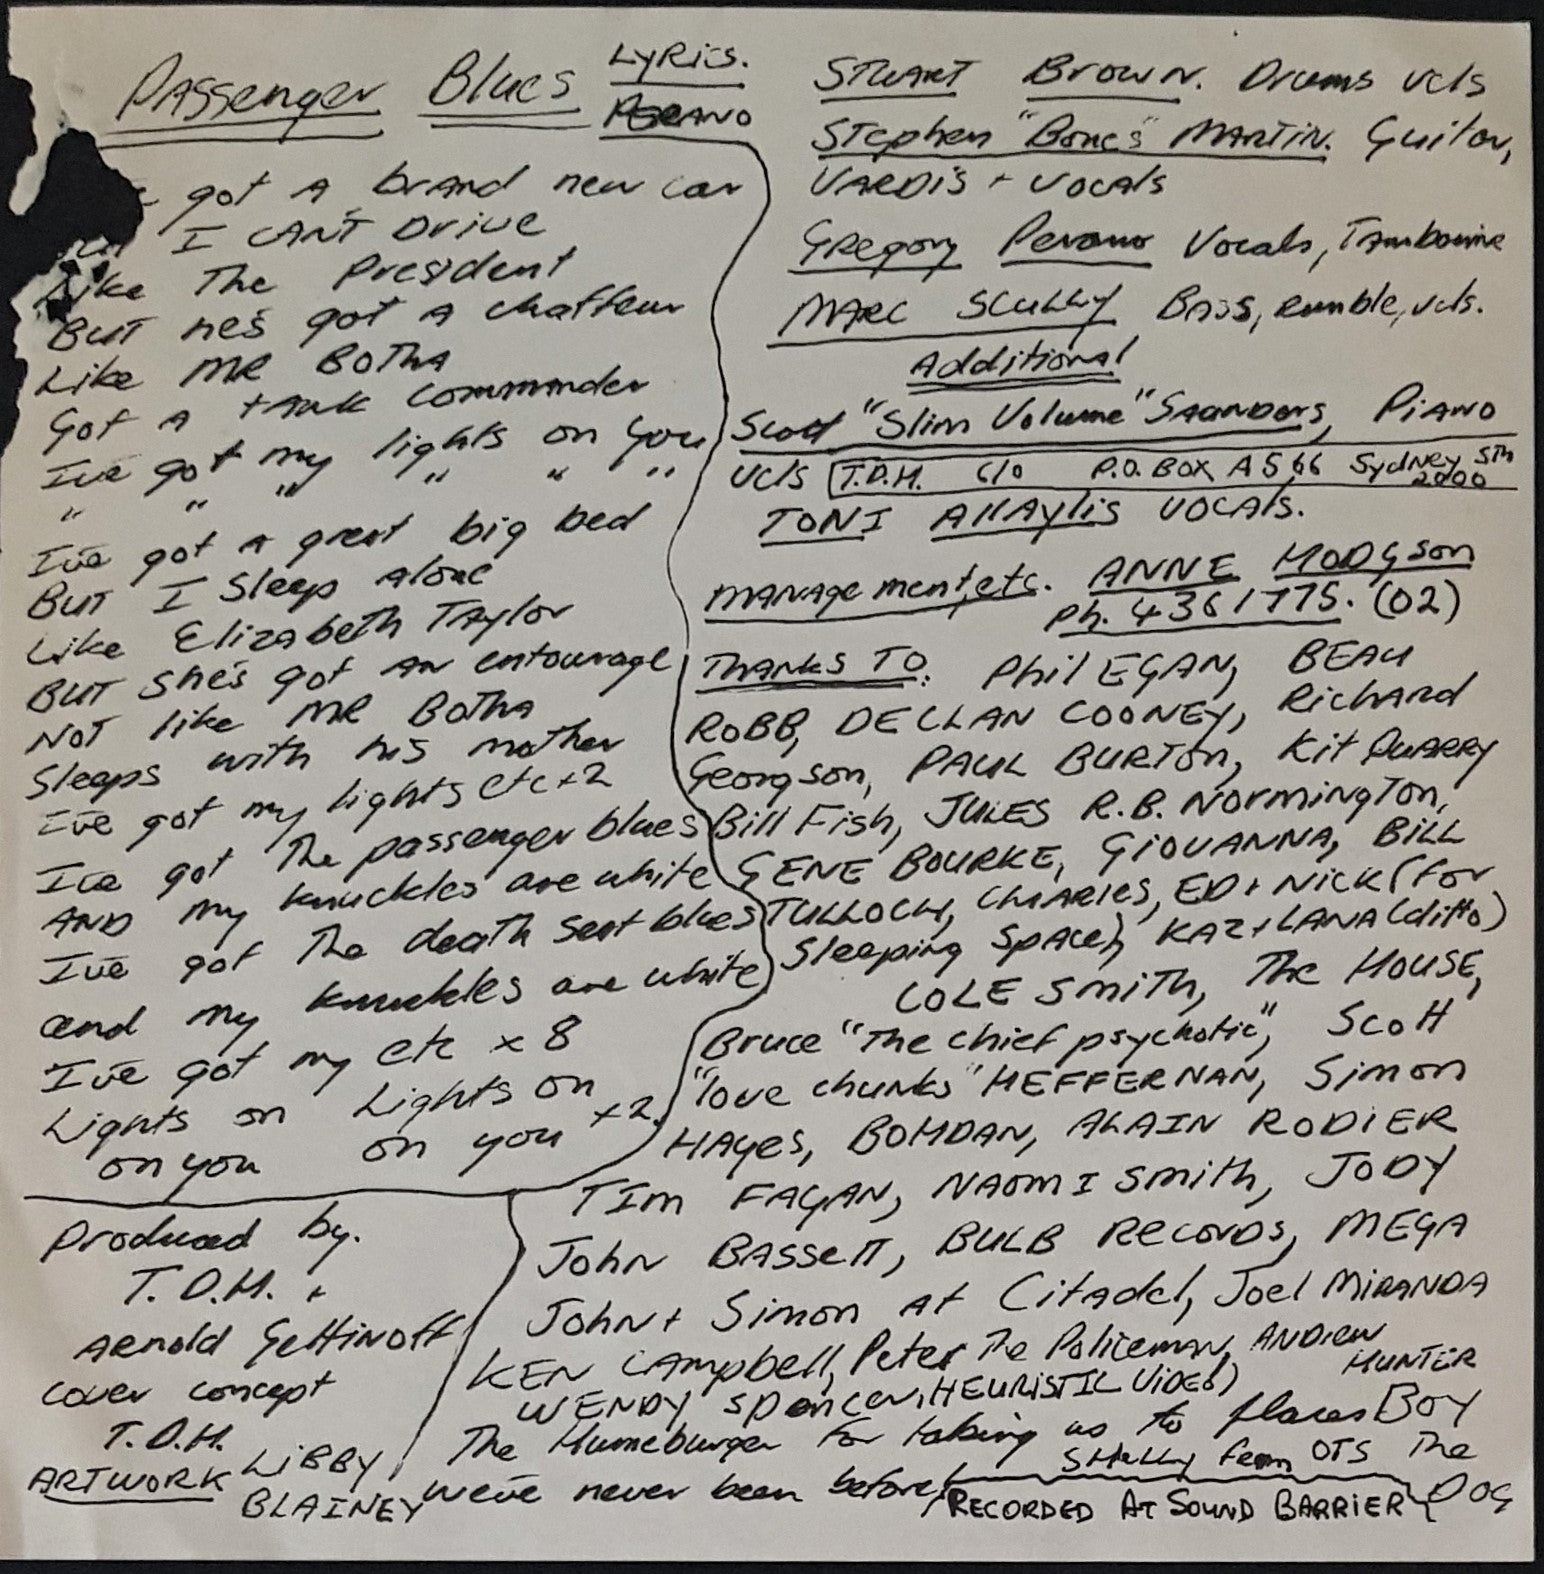 Passenger Blues LYRICS.
PERANO
got A brand new car
I CAN'T Drive
Like The President
BUT he's got A chaffeur
Like MR BOTHA
Got A tank commander
I've got my lights on you
" " " " "
I've got A great big bed
BUT I Sleep Alone
Like Elizabeth Taylor
BUT she's got AN entourage
NOT like MR BOTHA
Sleeps with his mother
I've got my lights etc x2
I've got The passenger blues
AND my knuckles are white
I've got The death seat blues
and my knuckles are white
I've got my etc x 8
Lights on Lights on
on you on you x2
Produced by.
T.D.H. +
Arnold Gettinoff
cover concept
T.D.H.
ARTWORK LiBBY
BLAINEY
STUART Brown. Drums vcls
Stephen "Bones" MARTIN. Guitar,
VARDIS + VOCALS
Gregory Perano Vocals, TAmbourine
MARC SCULLY BASS, rumble, vcls.
Additional
Scott "Slim Volume" SAUNDERS, PiANO
vcls T.D.H. C/o P.O. BOX A 566 Sydney Sth
2000
TONI Allaylis VOCALS.
MANAgement, etc. ANNE HODGson
Ph. 4361775. (02)
THANKS TO: Phil EGAN, BEAU
ROBB, DECLAN COONEY, RICHARD
Georgson, PAUL BURTON, Kit QUARRY
Bill Fish, JULES R.B. NORmingTON,
GENE BOURKE, GIOVANNA, BILL
TULLOCH, CHARLES, ED + NICK (for
Sleeping space), KAZ + LANA (ditto)
COLE SmiTh, The HOUSE,
Bruce "The chief psychotic", Scott
"love chunks" HEFFERNAN, Simon
HAYes, BOHDAN, ALAIN RODIER
TIM FAGAN, NAOMI Smith, JODY
JohN BASSETT, BULB RECORDS, MEGA
JohN + Simon At Citadel, Joel MIRANDA
KEN CAMpbell, Peter The Policeman, ANDREW
HUNTER
WENDY Spencer, (HEURISTIC VIDEO)
The Humeburger For taking us to places BOY
SHelly from OTS The
we've never been before! DOG
RECORDED AT SOUND BARRIER